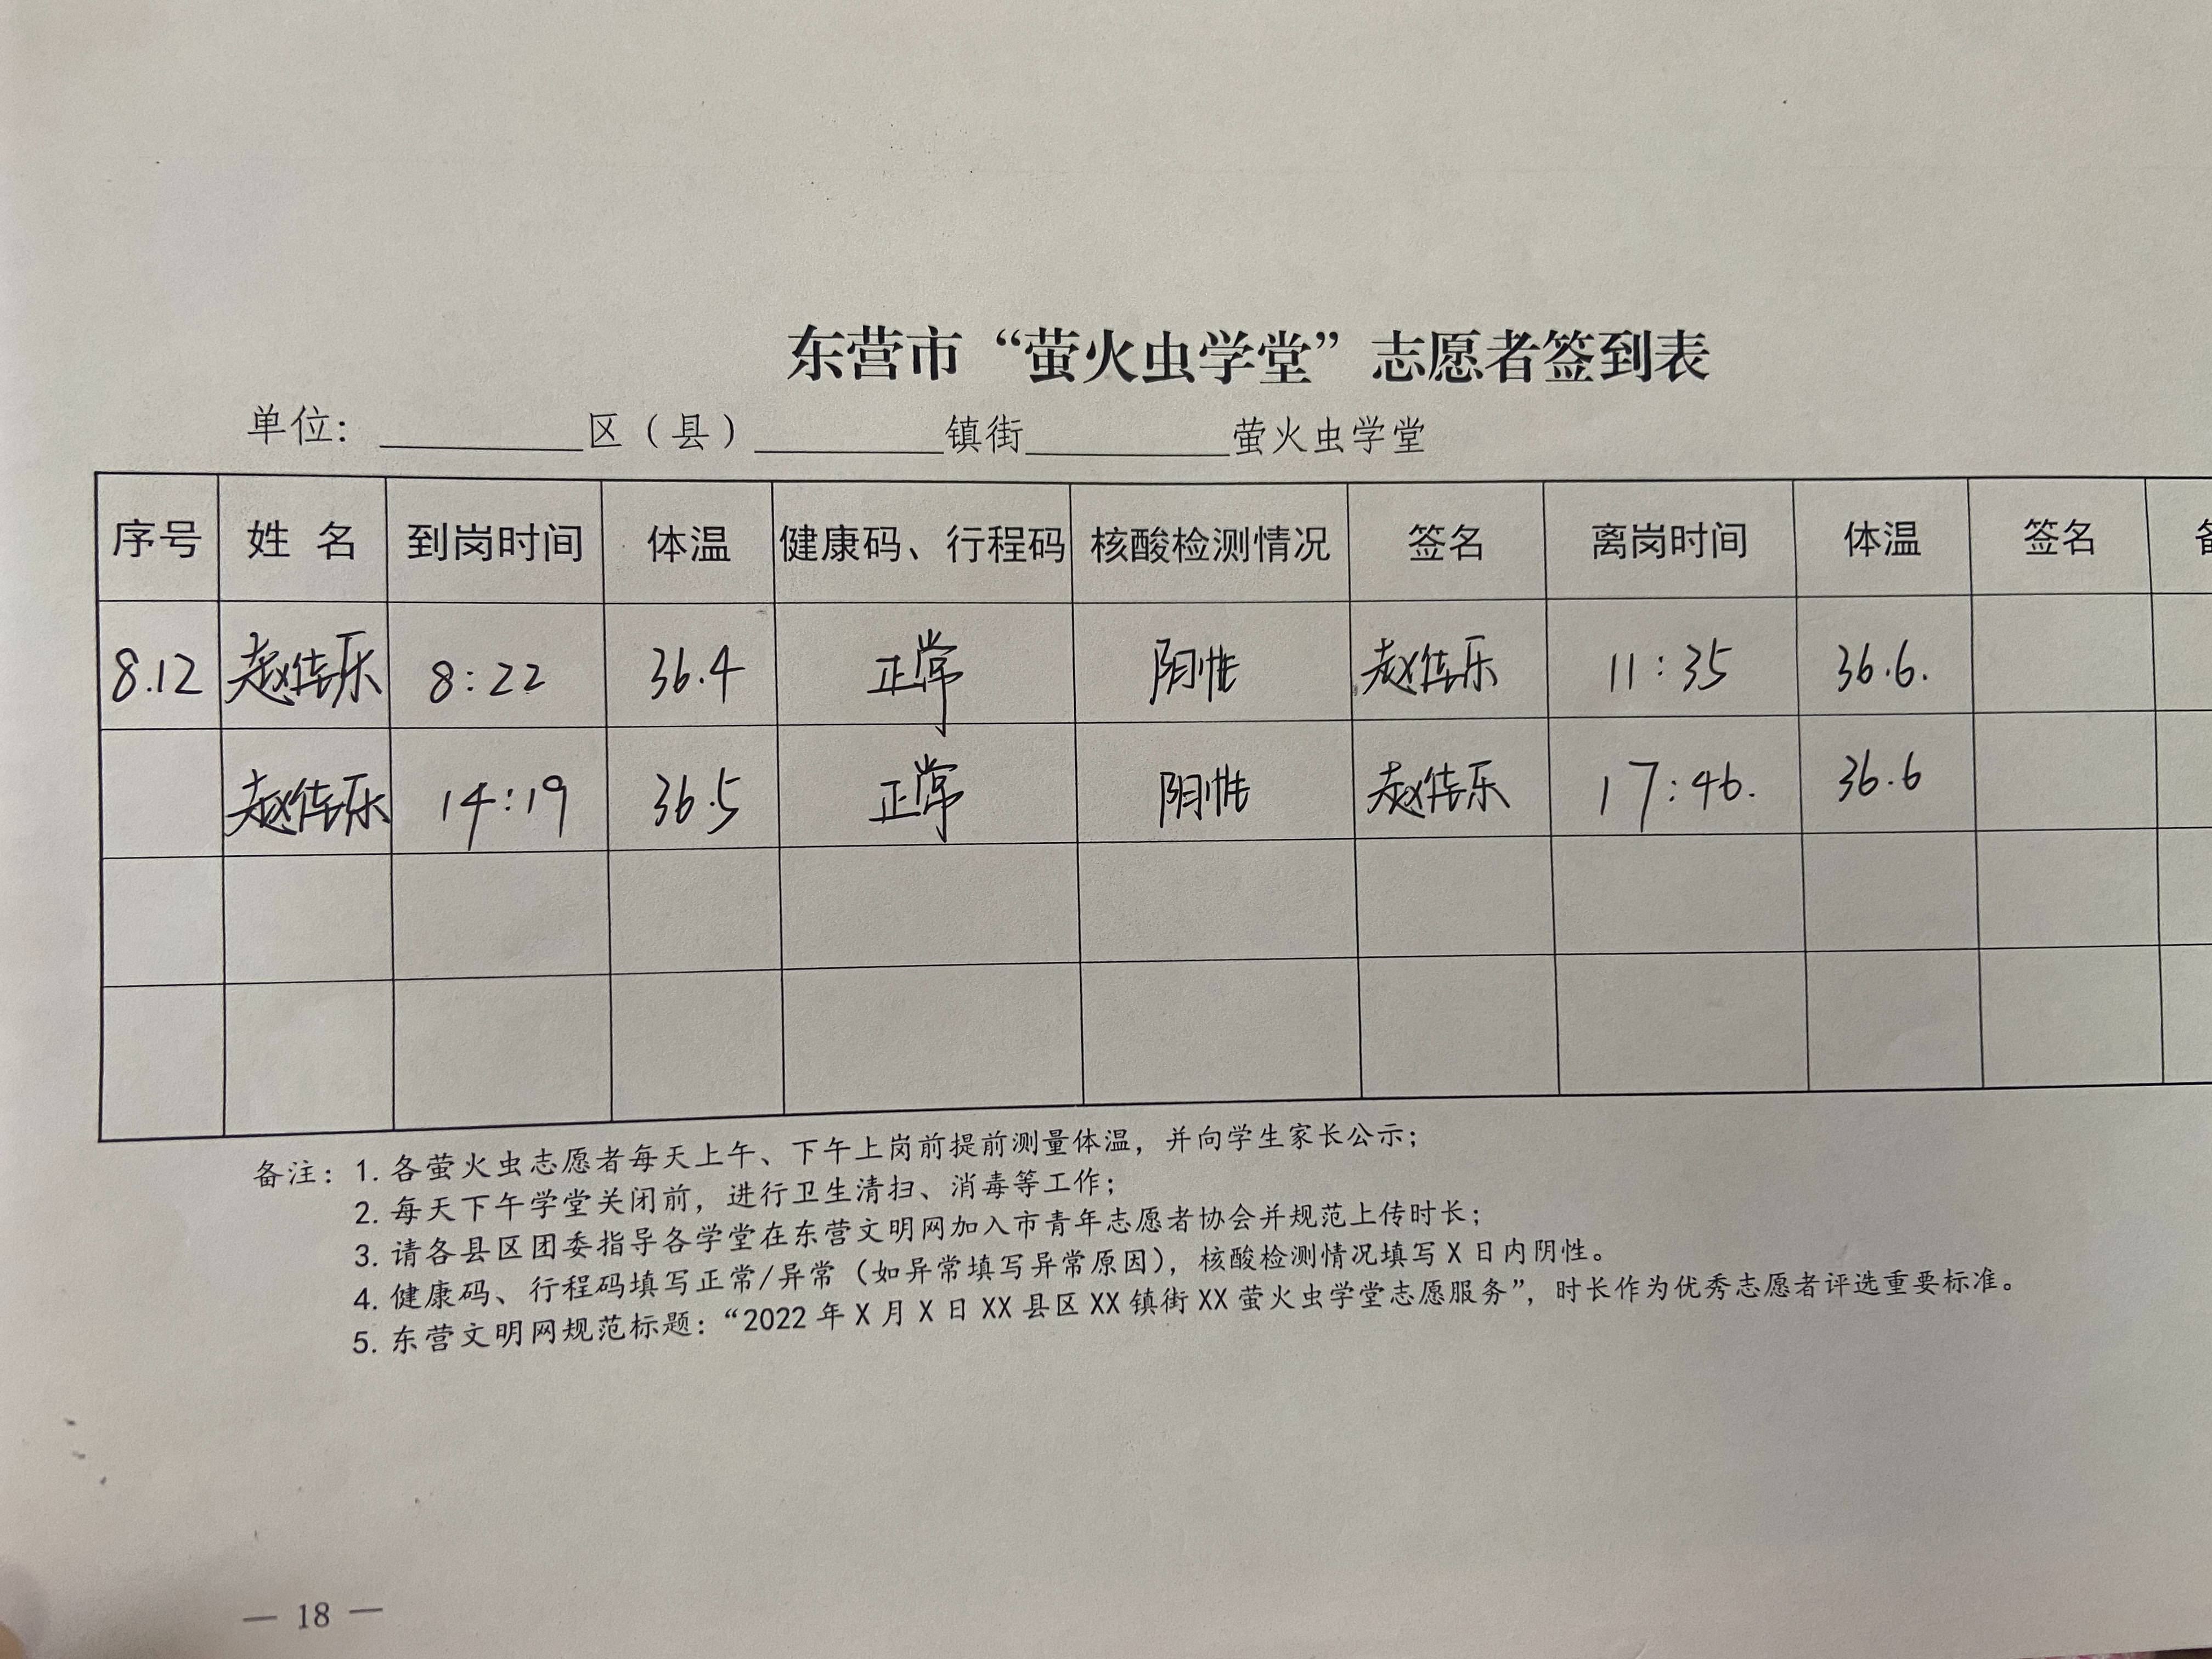 东营市“萤火虫学堂”志愿者签到表
单位：________区（县）________镇街________萤火虫学堂
序号 姓 名 到岗时间 体温 健康码、行程码 核酸检测情况 签名 离岗时间 体温 签名
8.12 赵佳乐 8:22 36.4 正常 阴性 赵佳乐 11:35 36.6.
赵佳乐 14:19 36.5 正常 阴性 赵佳乐 17:46. 36.6
备注：1. 各萤火虫志愿者每天上午、下午上岗前提前测量体温，并向学生家长公示；
2. 每天下午学堂关闭前，进行卫生清扫、消毒等工作；
3. 请各县区团委指导各学堂在东营文明网加入市青年志愿者协会并规范上传时长；
4. 健康码、行程码填写正常/异常（如异常填写异常原因），核酸检测情况填写 X 日内阴性。
5. 东营文明网规范标题：“2022 年 X 月 X 日 XX 县区 XX 镇街 XX 萤火虫学堂志愿服务”，时长作为优秀志愿者评选重要标准。
— 18 —